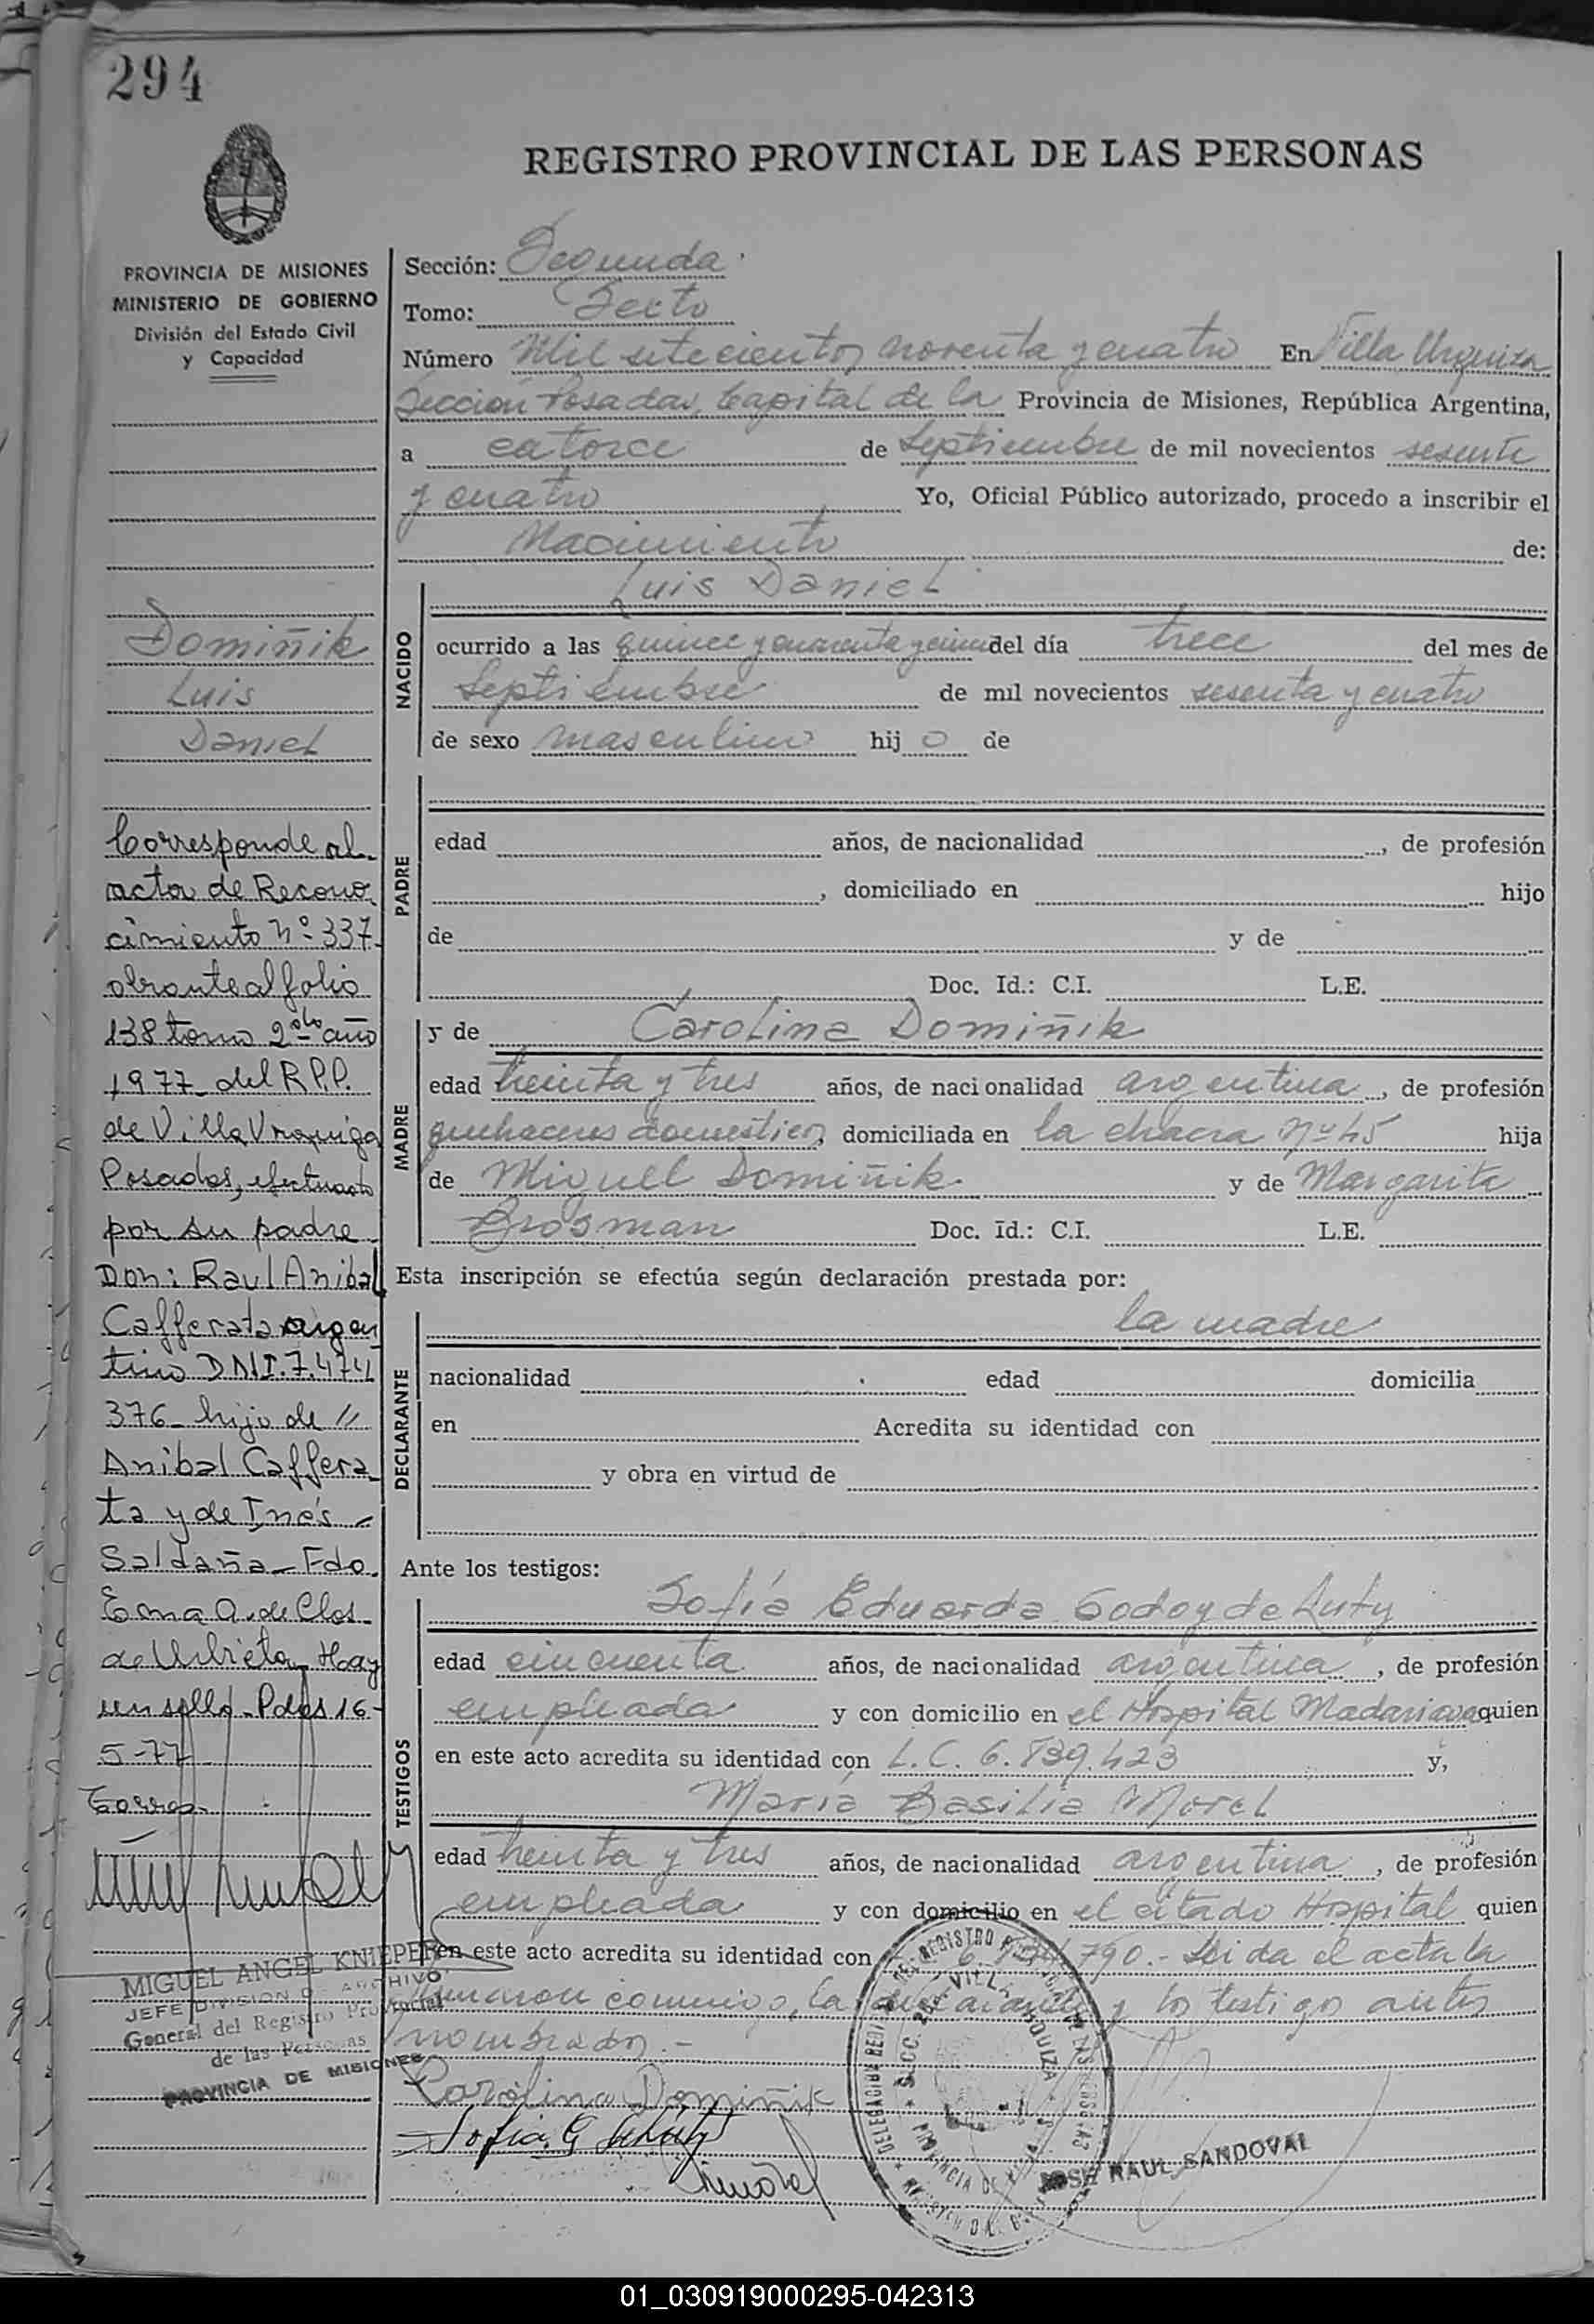 294
REGISTRO PROVINCIAL DE LAS PERSONAS
PROVINCIA DE MISIONES
MINISTERIO DE GOBIERNO
División del Estado Civil
y Capacidad
Domiñik
Luis
Daniel
Corresponde al
acta de Recono
cimiento Nº 337
obrante al folio
138 tomo 2do año
1977 del R.P.P.
de Villa Urquiza
Posadas, efectuado
por su padre
Don: Raul Anibal
Cafferata argen
tino D.N.I. 7.474
376 - hijo de //
Anibal Caffera
ta y de Inés -
Saldaña - Fdo.
Ema A. de Clos
de Urbieta Hay
un sello - Pdas 16-
5-77
MIGUEL ANGEL KNIEPER
JEFE DIVISION ARCHIVO
General del Registro Provincial
de las Personas
PROVINCIA DE MISIONES
Sección: Segunda
Tomo: Secto
Número Mil setecientos noventa y cuatro En Villa Urquiza
Sección Posadas, Capital de la Provincia de Misiones, República Argentina,
a catorce de Septiembre de mil novecientos sesenta
y cuatro Yo, Oficial Público autorizado, procedo a inscribir el
Nacimiento de:
NACIDO
Luis Daniel
ocurrido a las quince y cuarenta y cinco del día trece del mes de
Septiembre de mil novecientos sesenta y cuatro
de sexo masculino hij o de
PADRE
edad años, de nacionalidad , de profesión
, domiciliado en hijo
de y de
Doc. Id.: C.I. L.E.
MADRE
y de Carolina Domiñik
edad treinta y tres años, de nacionalidad argentina, de profesión
quehaceres domésticos, domiciliada en la chacra Nº 45 hija
de Miguel Domiñik y de Margarita
Brosman Doc. Id.: C.I. L.E.
Esta inscripción se efectúa según declaración prestada por:
DECLARANTE
la madre
nacionalidad edad domicilia
en Acredita su identidad con
y obra en virtud de
Ante los testigos:
TESTIGOS
Sofía Eduarda Godoy de
edad cincuenta años, de nacionalidad argentina, de profesión
empleada y con domicilio en el Hospital Madariaga quien
en este acto acredita su identidad con L.C. 6.839.423 y,
María Basilia Morel
edad treinta y tres años, de nacionalidad argentina, de profesión
empleada y con domicilio en el citado Hospital quien
en este acto acredita su identidad con 790.- Leida el acta la
firmaron conmigo, la declarante y los testigos antes
nombrados.-
Carolina Domiñik
Sofia G
JOSE RAUL SANDOVAL
01_030919000295-042313